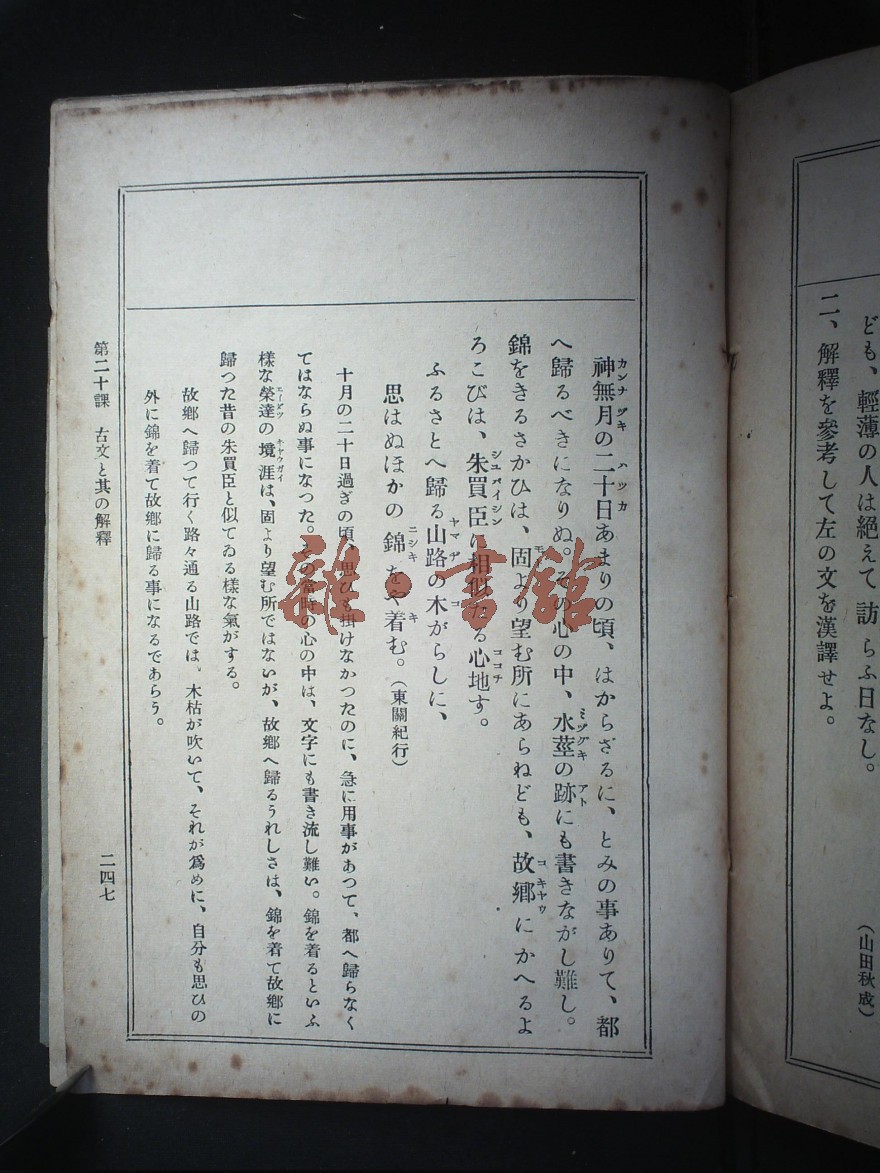 ども、輕薄の人は絕えて訪らふ日なし。
(山田秋成)
二、解釋を參考して左の文を漢譯せよ。
神無月の二十日あまりの頃、はからざるに、とみの事ありて、都
へ歸るべきになりぬ。その心の中、水莖の跡にも書きながし難し。
錦をきるさかひは、固より望む所にあらねども、故鄕にかへるよ
ろこびは、朱買臣に相似たる心地す。
ふるさとへ歸る山路の木がらしに、
思はぬほかの錦をや着む。(東關紀行)
十月の二十日過ぎの頃、思ひも掛けなかつたのに、急に用事があつて、都へ歸らなく
てはならぬ事になつた。その當時の心の中は、文字にも書き流し難い。錦を着るといふ
樣な榮達の境涯は、固より望む所ではないが、故鄕へ歸るうれしさは、錦を着て故鄕に
歸つた昔の朱買臣と似てゐる樣な氣がする。
故鄕へ歸つて行く路々通る山路では、木枯が吹いて、それが爲めに、自分も思ひの
外に錦を着て故鄕に歸る事になるであらう。
第二十課 古文と其の解釋
二四七
雜·書館